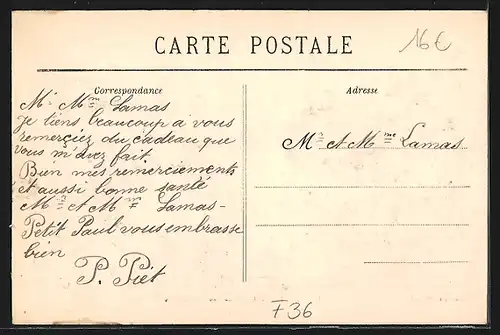 CARTE POSTALE
16€
Correspondance
Adresse
Mr Mme Lamas
Je tiens beaucoup a vous
remerciez du cadeau que
vous m'avez fait.
Bien mes remerciements
et aussi bonne santé
Mr et Mme Lamas-
Petit Paul vous embrasse
bien
P. Piet
Mr et Mme Lamas
F36